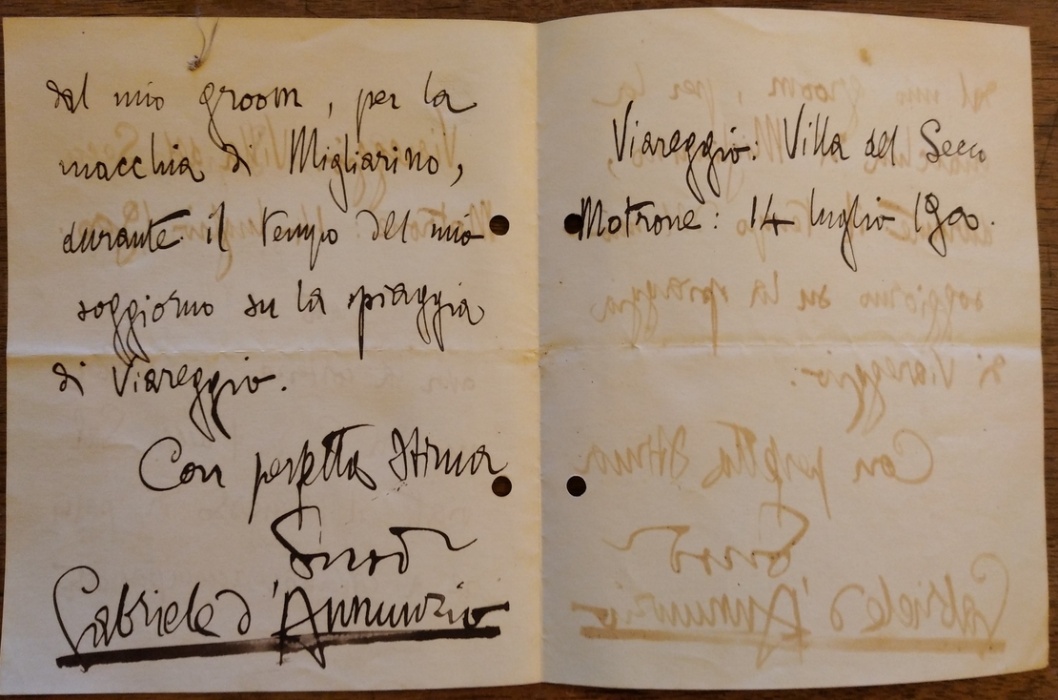 dal mio groom, per la
macchia di Migliarino,
durante il tempo del mio
soggiorno su la spiaggia
di Viareggio.
Con perfetta stima
Gabriele d'Annunzio
Viareggio: Villa del Secco
Motrone: 14 luglio 1900.